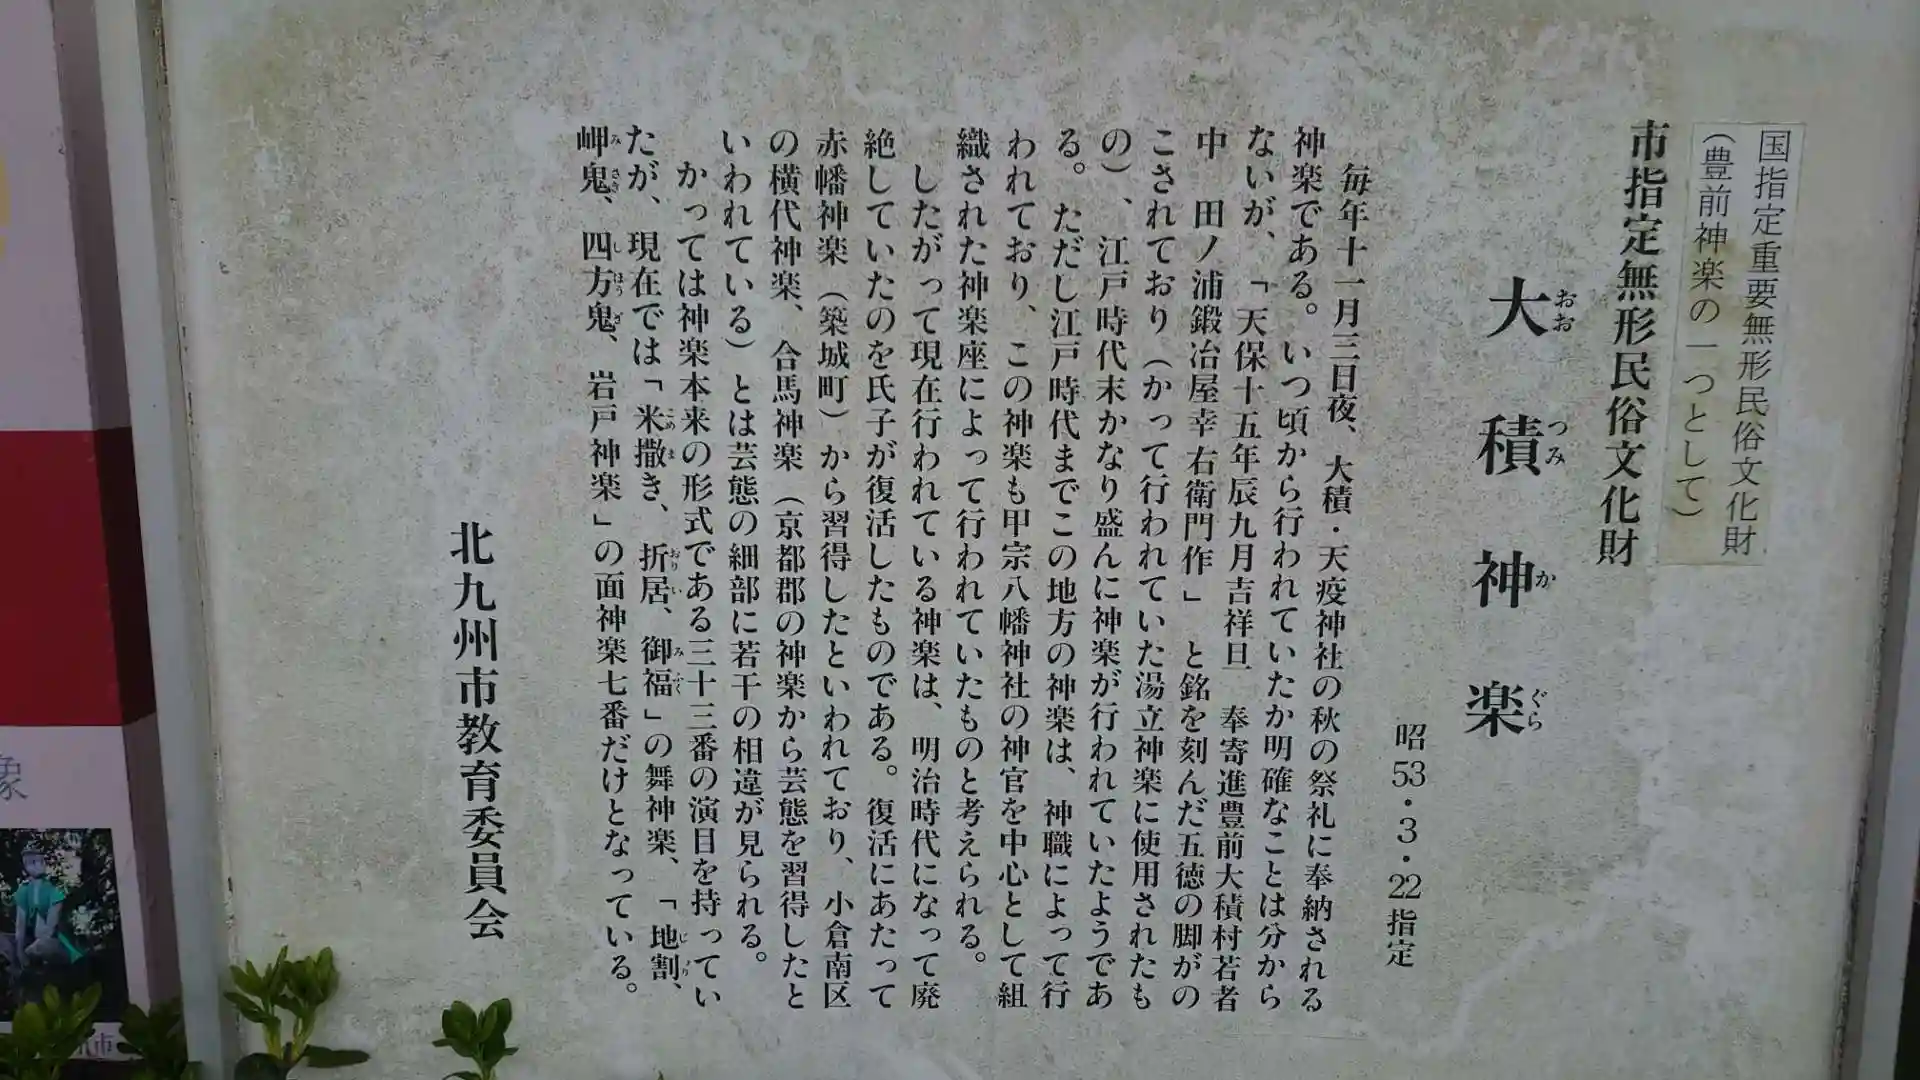 国指定重要無形民俗文化財
(豊前神楽の一つとして)
市指定無形民俗文化財
大積神楽
おおつみかぐら
昭53・3・22指定
毎年十一月三日夜、大積・天疫神社の秋の祭礼に奉納される
神楽である。いつ頃から行われていたか明確なことは分から
ないが、「天保十五年辰九月吉祥旦 奉寄進豊前大積村若者
中 田ノ浦鍛冶屋幸右衛門作」と銘を刻んだ五徳の脚がの
こされており(かって行われていた湯立神楽に使用されたも
の)、江戸時代末かなり盛んに神楽が行われていたようであ
る。ただし江戸時代までこの地方の神楽は、神職によって行
われており、この神楽も甲宗八幡神社の神官を中心として組
織された神楽座によって行われていたものと考えられる。
したがって現在行われている神楽は、明治時代になって廃
絶していたのを氏子が復活したものである。復活にあたって
赤幡神楽(築城町)から習得したといわれており、小倉南区
の横代神楽、合馬神楽(京都郡の神楽から芸態を習得したと
いわれている)とは芸態の細部に若干の相違が見られる。
かっては神楽本来の形式である三十三番の演目を持ってい
たが、現在では「米撒き、折居、御福」の舞神楽、「地割、
岬鬼、四方鬼、岩戸神楽」の面神楽七番だけとなっている。
北九州市教育委員会
象
市